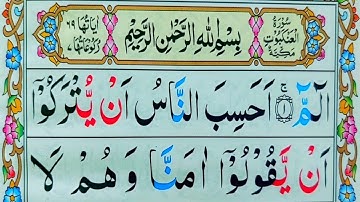 سُوْرَةُ الْعَنْكَبُوْتِ مَكِّيَّةٌ
بِسْمِ اللّٰهِ الرَّحْمٰنِ الرَّحِيْمِ
اٰيَاتُهَا ٦٩ رُكُوْعَاتُهَا ٧
الٓمّٓ ۚ اَحَسِبَ النَّاسُ اَنْ يُّتْرَكُوْٓا
اَنْ يَّقُوْلُوْٓا اٰمَنَّا وَهُمْ لَا